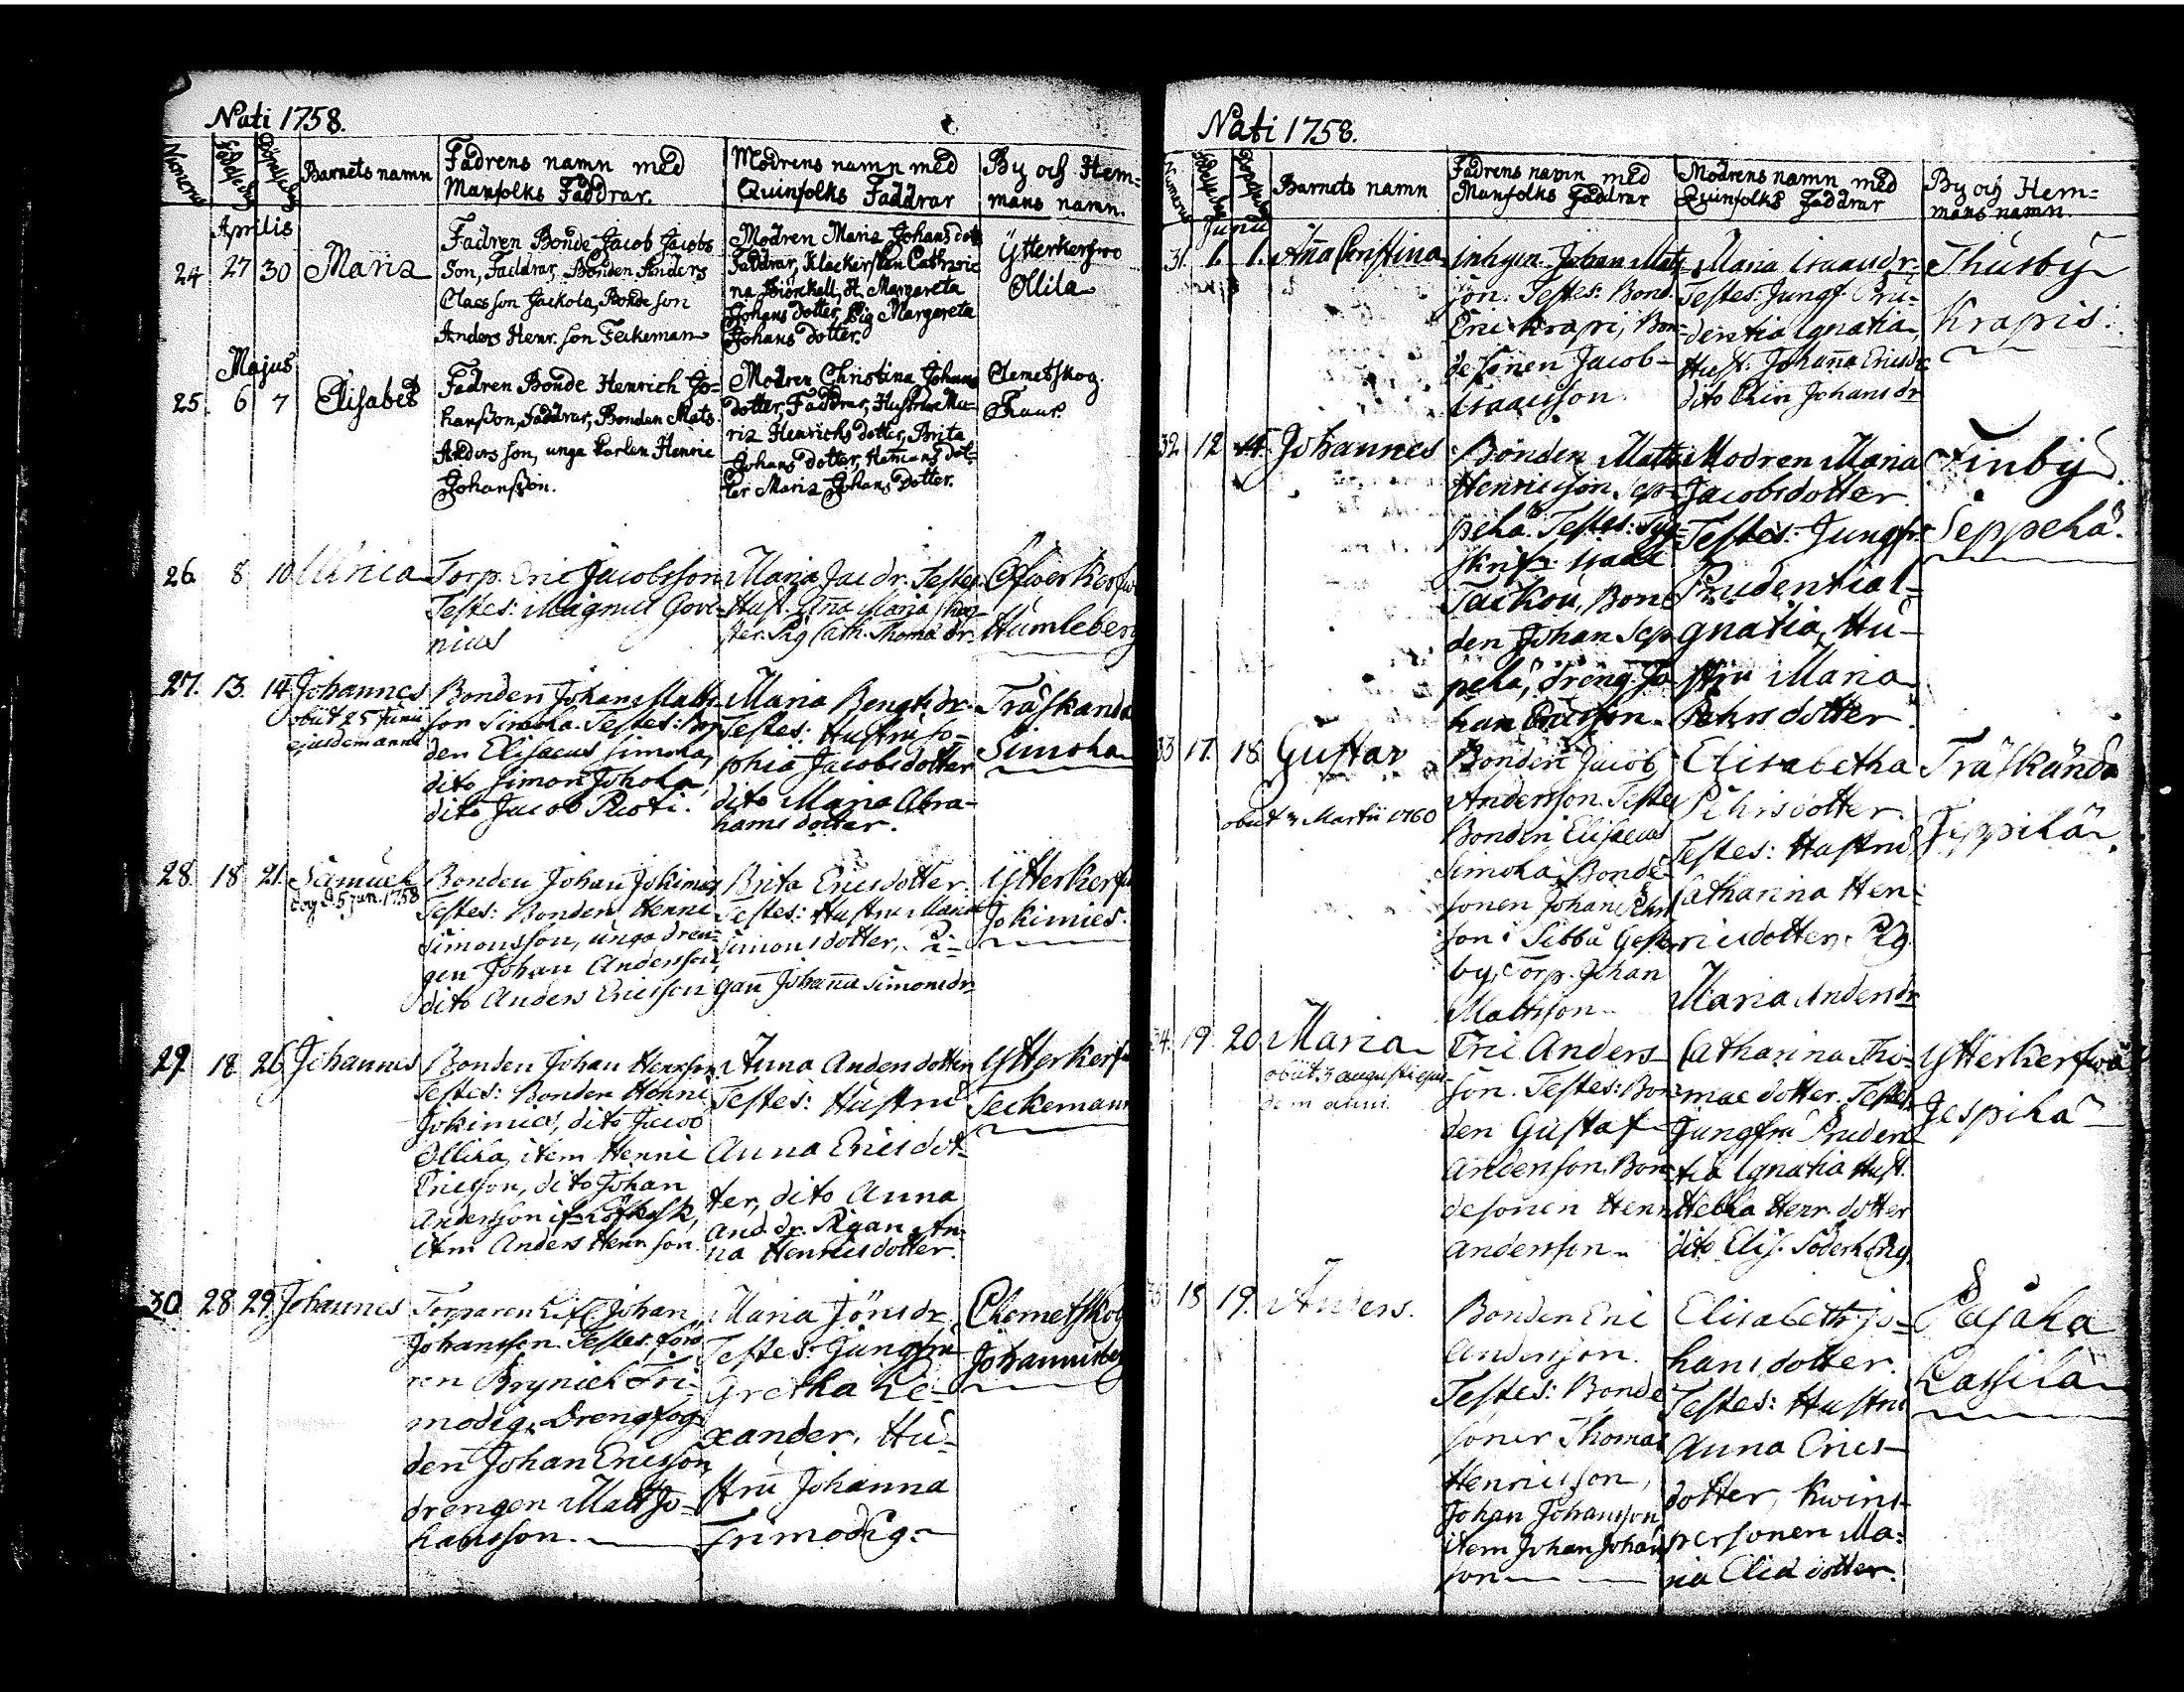 Nati 1758.
Numerus
Födelsedag
Döpelsedag
Barnets namn
Fadrens namn med
Manfolks Faddrar.
Modrens namn med
Quinfolks Faddrar
By och Hem-
mans namn.
Aprilis
24 27 30 Maria
Fadren Bonde Jacob Jacobs
Son, Faddrar, Bonden Anders
Claesson Jackola, Bondeson
Anders Henr. son Teckeman
Modren Maria Johans dot
Faddrar, Klackarskan Cathari
na Biörckell, H. Margareta
Johans dotter, Pig Margareta
Johans dotter.
Ytterkerswo
Ollila
Majus
25. 6 7 Elisabet
Fadren Bonde Henrich Jo-
hansson, Faddrar, Bonden Mats
Anders son, unga karlen Henric
Johansson.
Modren Christina Johans
dotter, Faddrar, Hustru Ma-
ria Henrichs dotter, Brita
Johans dotter, Hemans dot-
ter Maria Johans dotter.
Clemetskog.
26. 8 10 Ulrica
Torp. Eric Jacobsson
Testes: Magnus Gove-
nius
Maria Jac dr. Testes
Hust. Anna Maria
ster. Pig Cath. Thomæ dr.
Öfwerkersw
Humleberg
27. 13. 14 Johannes
obiit 25 Junii
ejusdem anni
Bonden Johan Matts
son Simola. Testes: Bon
den Elisaeus Simola,
dito Simon Johola,
dito Jacob Puoti.
Maria Bengts dr.
Testes: Hustru So-
phia Jacobsdotter
dito Maria Abra-
hams dotter.
Träskanda
Simola
28. 18 21. Samuel
dog d. 5 jun. 1758
Bonden Johan Jokimies
Testes: Bonden Henric
Simonsson, unga dren-
gen Johan Andersson,
dito Anders Ericsson
Brita Ericsdotter.
Testes: Hustru Maria
Simonsdotter, Pi-
gan Johanna Simonsdr
Ytterkersw
Jokimies.
29 18 26 Johannes
Bonden Johan Henrsson
Testes: Bonden Henric
Jokimies, dito Jacob
Ollila, item Henric
Ericsson, dito Johan
Andersson
item Anders Henr son
Anna Andersdotter
Testes: Hustru
Anna Erics dot-
ter, dito Anna
And. dr. Pigan An-
na Henricsdotter.
Ytterkersw
Teckeman
30. 28 29. Johannes
Torparen Johan
Johansson. Testes:
ren Bryniel Tri-
modig. Drengfog
den Johan Ericsson,
drengen Matt Jo-
hansson.
Maria Jöns dr.
Testes: Jungfru
Gretha Le-
xander, Hu-
stru Johanna
Trimodig.
Clemetskog
Johannisberg
Nati 1758.
Numerus
Födelsedag
Döpelsedag
Barnets namn
Fadrens namn med
Manfolks Faddrar
Modrens namn med
Quinfolks Faddrar
By och Hem-
mans namn.
Junii
31. 1. 1. Anna Christina
Inhysn. Johan Mats
son. Testes: Bond.
Eric Krapi, Bon-
desonen Jacob
Isaacsson.
Maria Isaacsdr.
Testes: Jungf. Pru-
dentia Ignatia,
Hust. Johanna Ericsdr
dito Johansdr
Thusby
Krapis.
32. 12 14. Johannes
Bonden Matts
Henricsson Sep-
pelä. Testes:
skrifr.
Taikou, Bon
den Johan Sep
pelä, dreng Jo
han Ericsson.
Modren Maria
Jacobsdotter
Testes: Jungfr.
Prudentia I-
gnatia, Hu-
stru Maria
Pehrsdotter.
Finby
Seppelä.
33 17. 18. Gustav
obiit 3 Martii 1760
Bonden Jacob
Andersson. Testes
Bonden Elisaeus
Simola, Bonde-
sonen Johan Pehrs
son i Sibbå
by, Torp. Johan
Mattsson.
Elisabetha
Pehrsdotter.
Testes: Hustru
Catharina Hen-
ricsdotter, Pig.
Maria Andersdr
Träskända
Seppilä.
34. 19. 20 Maria
obiit 3 augusti ejus-
dem anni.
Eric Anders-
son. Testes: Bon-
den Gustaf
Andersson. Bon-
desonen Henr
Andersson.
Catharina Tho-
mae dotter. Testes
Jungfru Pruden-
tia Ignatia Hust.
Hella Henr. dotter
dito Elis. Söderberg.
Ytterkerswå
Jespilä
35 18 19. Anders.
Bonden Eric
Andersson.
Testes: Bonde
söner Thomas
Henricsson,
Johan Johansson
item Johan Johans
son
Elisabeth Jo-
hansdotter.
Testes: Hustru
Anna Erics-
dotter, Kwins-
personen Ma-
ria Elia dotter.
Påjala
Lassila